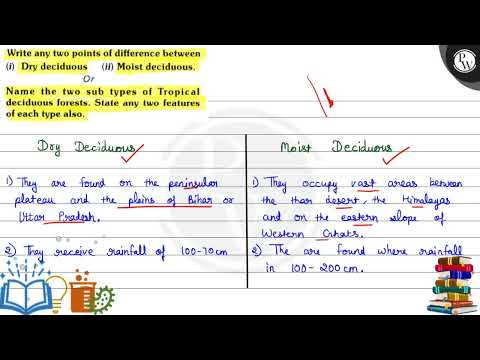 Write any two points of difference between
(i) Dry deciduous (ii) Moist deciduous.
Or
Name the two sub types of Tropical
deciduous forests. State any two features
of each type also.
PW
Dry Deciduous
1) They are found on the peninsular
plateau and the plains of Bihar or
Uttar Pradesh.
2) They receive rainfall of 100-70cm
Moist Deciduous
1) They occupy vast areas between
the thar desert, the Himalayas
and on the eastern slope of
Western Ghats.
2) The are found where rainfall
in 100-200cm.